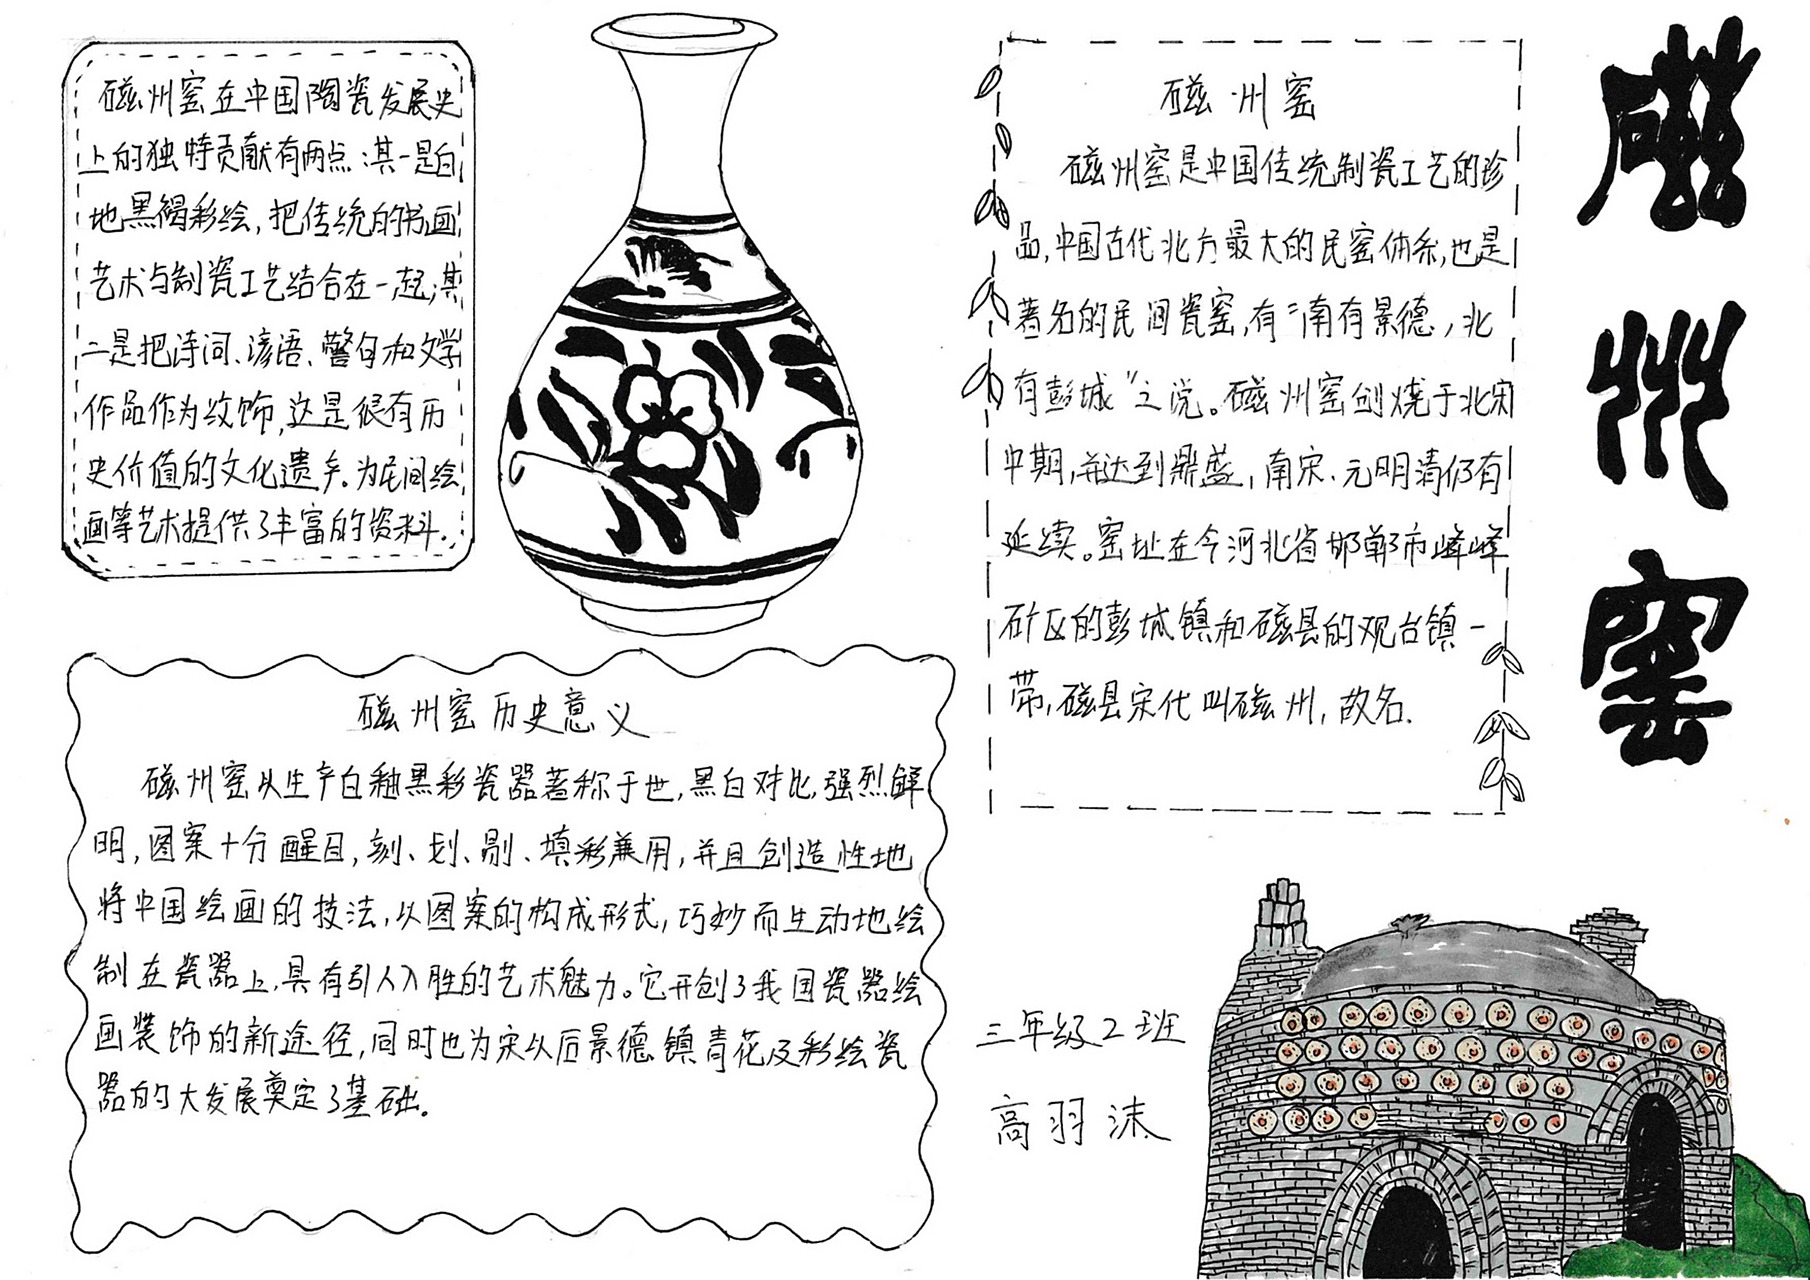 磁州窑
磁州窑
磁州窑是中国传统制瓷工艺的珍
品,中国古代北方最大的民窑体系,也是
著名的民间瓷窑,有“南有景德,北
有彭城”之说。磁州窑创烧于北宋
中期,并达到鼎盛,南宋、元明清仍有
延续。窑址在今河北省邯郸市峰峰
矿区的彭城镇和磁县的观台镇一
带,磁县宋代叫磁州,故名.
磁州窑在中国陶瓷发展史
上的独特贡献有两点:其一是白
地黑褐彩绘,把传统的书画
艺术与制瓷工艺结合在一起;其
二是把诗词、谚语、警句和文学
作品作为纹饰,这是很有历
史价值的文化遗产.为民间绘
画等艺术提供了丰富的资料.
磁州窑历史意义
磁州窑以生产白釉黑彩瓷器著称于世,黑白对比,强烈鲜
明,图案十分醒目,刻、划、剔、填彩兼用,并且创造性地
将中国绘画的技法,以图案的构成形式,巧妙而生动地绘
制在瓷器上,具有引人入胜的艺术魅力。它开创了我国瓷器绘
画装饰的新途径,同时也为宋以后景德镇青花及彩绘瓷
器的大发展奠定了基础。
三年级2班
高羽沫